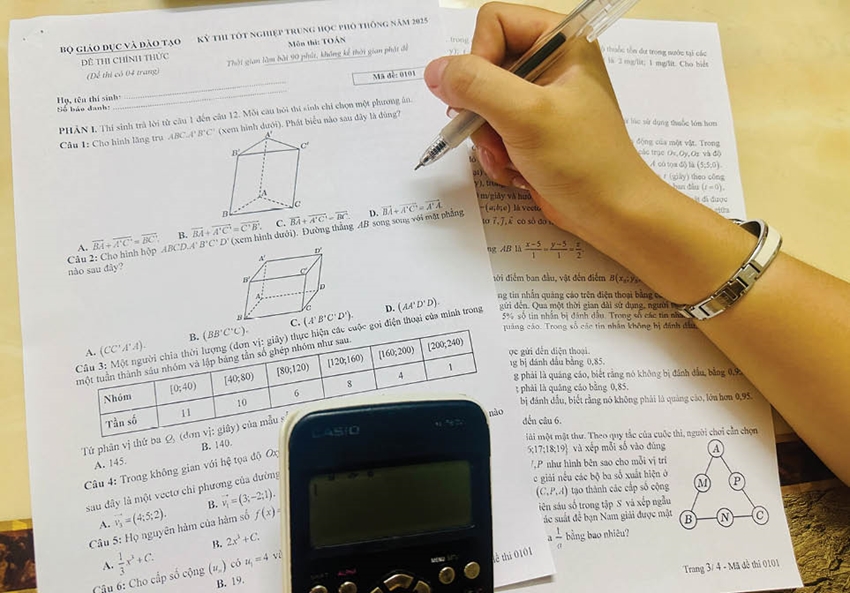 BỘ GIÁO DỤC VÀ ĐÀO TẠO
ĐỀ THI CHÍNH THỨC
(Đề thi có 04 trang)
KỲ THI TỐT NGHIỆP TRUNG HỌC PHỔ THÔNG NĂM 2025
Môn thi: TOÁN
Thời gian làm bài 90 phút, không kể thời gian phát đề
Họ, tên thí sinh:
Số báo danh:
Mã đề: 0101
PHẦN I. Thí sinh trả lời từ câu 1 đến câu 12. Mỗi câu hỏi thí sinh chỉ chọn một phương án.
Câu 1: Cho hình lăng trụ ABC.A'B'C' (xem hình dưới). Phát biểu nào sau đây là đúng?
A'
B'
C'
A
B
C
A. BA + A'C' = BC'. B. BA + A'C' = C'B'. C. BA + A'C' = BC. D. BA + A'C' = A'A.
Câu 2: Cho hình hộp ABCD.A'B'C'D' (xem hình dưới). Đường thẳng AB song song với mặt phẳng
nào sau đây?
A'
D'
B'
C'
A
D
B
C
A. (CC'A'A). B. (BB'C'C). C. (A'B'C'D'). D. (AA'D'D).
Câu 3: Một người chia thời lượng (đơn vị: giây) thực hiện các cuộc gọi điện thoại của mình trong
một tuần thành sáu nhóm và lập bảng tần số ghép nhóm như sau.
Nhóm [0;40) [40;80) [80;120) [120;160) [160;200) [200;240)
Tần số 11 10 6 8 4 1
Tứ phân vị thứ ba Q₃ (đơn vị: giây) của mẫu
nào
A. 145. B. 140.
Câu 4: Trong không gian với hệ tọa độ Ox
sau đây là một vectơ chỉ phương của đường
A. v₃ = (4;5;2). B. v₁ = (3;−2;1).
Câu 5: Họ nguyên hàm của hàm số f(x)=
A. 1/3 x³ + C. B. 2x³ + C.
Câu 6: Cho cấp số cộng (uₙ) có u₁ = 4 và
B. 19.
CASIO
MENU
ALPHA
đề thi 0101
trong
thuốc tồn dư trong nước tại các
là 2 mg/lít; 1 mg/lít. Cho biết
lúc sử dụng thuốc lớn hơn
động của một vật. Trong
các trục Ox, Oy, Oz và độ
A có tọa độ là (5;5;0).
t (giây) theo công
ban đầu (t = 0),
m/giây và hướ
ật đi được
= (a;b;c) là vectơ
i, j, k có số đo
ng AB là x−5/1 = y−5/1 = z/2.
hời điểm ban đầu, vật đến điểm B(x
ng tin nhắn quảng cáo trên điện thoại bằng c
gửi đến. Qua một thời gian dài sử dụng, người
5% số tin nhắn bị đánh dấu. Trong số các tin nhắ
quảng cáo. Trong số các tin nhắn không bị đánh dấu,
ợc gửi đến điện thoại.
g bị đánh dấu bằng 0,85.
g phải là quảng cáo, biết rằng nó không bị đánh dấu, bằng 0,95.
t phải là quảng cáo bằng 0,85.
bị đánh dấu, biết rằng nó không phải là quảng cáo, lớn hơn 0,95.
đến câu 6.
iải một mật thư. Theo quy tắc của cuộc thi, người chơi cần chọn
5;17;18;19} và xếp mỗi số vào đúng
,P như hình bên sao cho mỗi vị trí
c giải nếu các bộ ba số xuất hiện ở
(C,P,A) tạo thành các cấp số cộng
iên sáu số trong tập S và xếp ngẫu
ác suất để bạn Nam giải được mật
a 1/a bằng bao nhiêu?
A
M
P
B
N
C
Trang 3/4 - Mã đề thi 0101